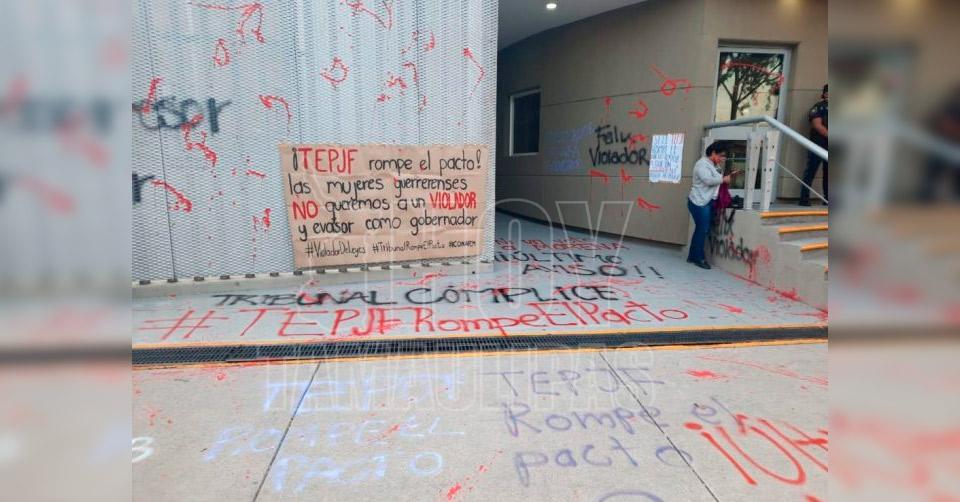 ¡TEPJF rompe el pacto!
las mujeres guerrerenses
NO queremos a un VIOLADOR
y evasor como gobernador
#VioladorDeLeyes #TribunalRompeElPacto #CONAFEM
Felix
Violador
Violador
ULTIMO
AVISO!!
TRIBUNAL CÓMPLICE
#TEPJF RompeElPacto
TEPJF
ROMPE EL
PACTO
TEPJF
Rompe el
pacto
HOY
TAMAULIPAS